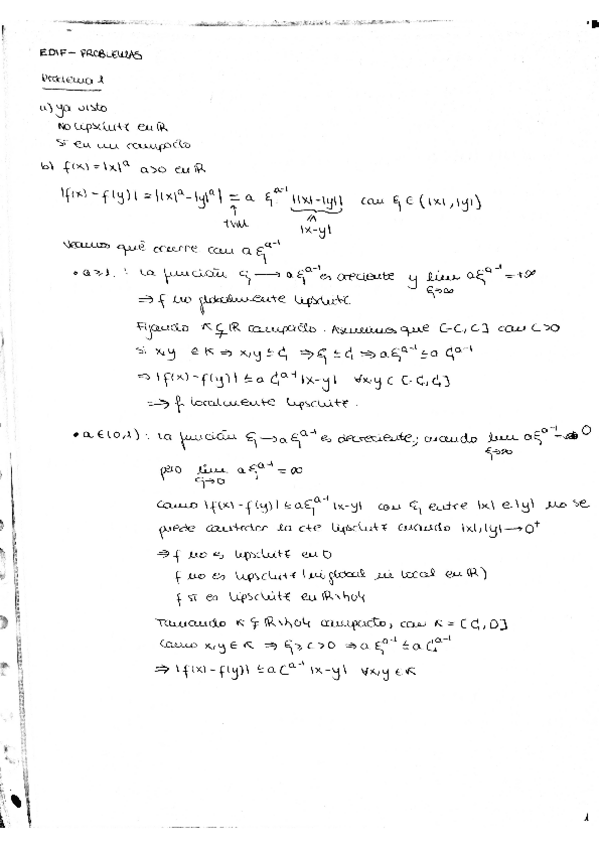 EDIF - PROBLEMAS
Problema 1
a) ya visto
No lipschitz en ℝ
Sí en un compacto
b) f(x) = |x|ᵃ a>0 en ℝ
|f(x) - f(y)| = ||x|ᵃ - |y|ᵃ| = a ξᵃ⁻¹ ||x|-|y|| con ξ ∈ (|x|, |y|)
↑ TVM
≤ |x-y|
Veamos qué ocurre con a ξᵃ⁻¹
• a≥1 : la función ξ → a ξᵃ⁻¹ es creciente y lim ξ→∞ a ξᵃ⁻¹ = +∞
⇒ f no globalmente lipschitz
Fijando K ⊊ ℝ compacto. Asumimos que [-C, C] con C>0
si x,y ∈ K ⇒ x,y ≤ C ⇒ ξ ≤ C ⇒ a ξᵃ⁻¹ ≤ a Cᵃ⁻¹
⇒ |f(x) - f(y)| ≤ a Cᵃ⁻¹ |x-y| ∀x,y ∈ [-C, C]
⇒ f localmente lipschitz.
• a ∈ (0,1) : la función ξ → a ξᵃ⁻¹ es decreciente, cuando lim ξ→∞ a ξᵃ⁻¹ → 0
pero lim ξ→0 a ξᵃ⁻¹ = ∞
Como |f(x) - f(y)| ≤ a ξᵃ⁻¹ |x-y| con ξ entre |x| e |y| no se
puede controlar la cte lipschitz cuando |x|, |y| → 0⁺
⇒ f no es lipschitz en 0
f no es lipschitz (ni global ni local en ℝ)
f sí es lipschitz en ℝ\{0}
Tomando K ⊊ ℝ\{0} compacto, con K = [C, D]
Como x,y ∈ K ⇒ ξ ≥ C > 0 ⇒ a ξᵃ⁻¹ ≤ a Cᵃ⁻¹
⇒ |f(x) - f(y)| ≤ a Cᵃ⁻¹ |x-y| ∀x,y ∈ K
1